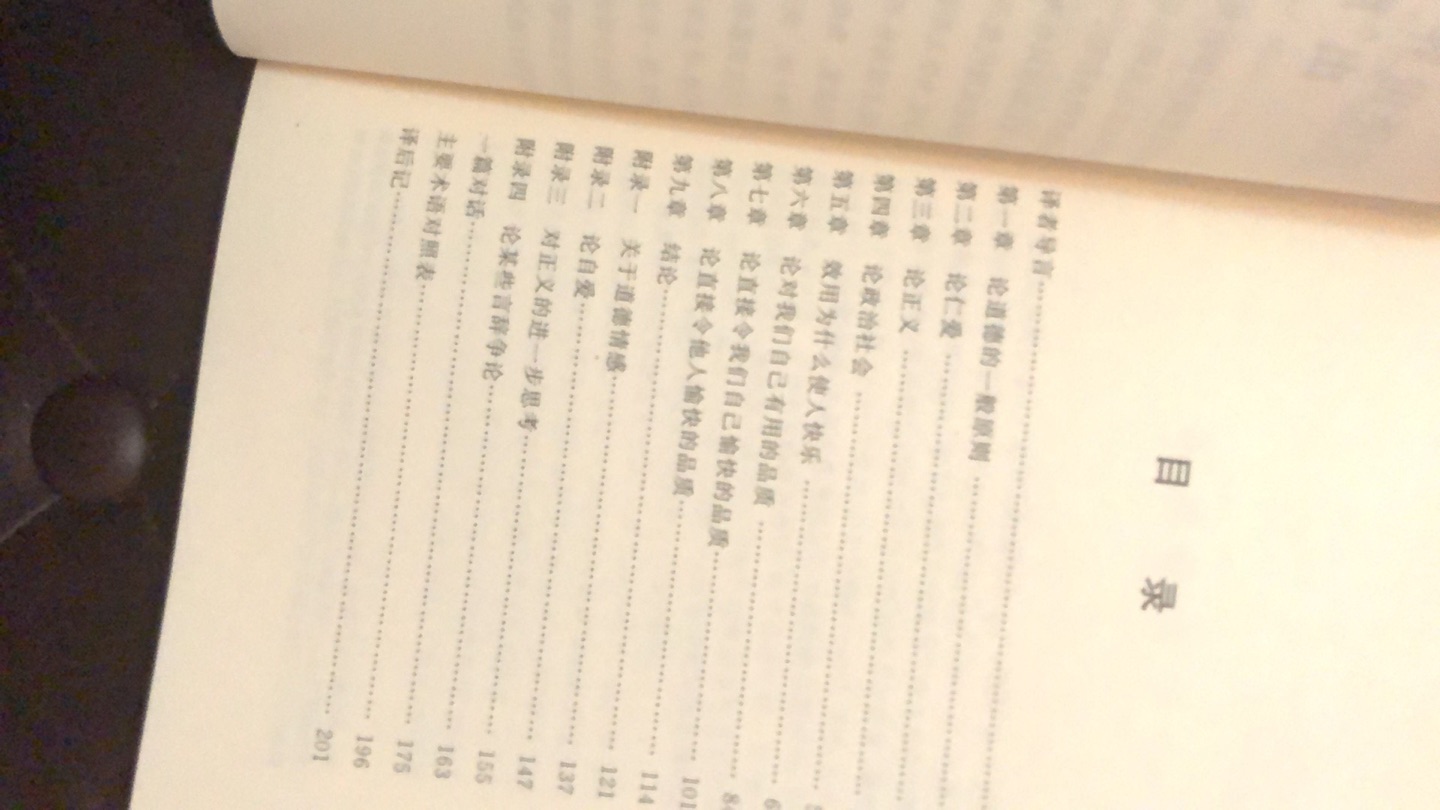 目 录
译者导言
第一章 论道德的一般原则
第二章 论仁爱
第三章 论正义
第四章 论政治社会
第五章 效用为什么使人快乐
第六章 论对我们自己有用的品质
第七章 论直接令我们自己愉快的品质 101
第八章 论直接令他人愉快的品质 114
第九章 结论 121
附录一 关于道德情感 137
附录二 论自爱 147
附录三 对正义的进一步思考 155
附录四 论某些言辞争论 163
一篇对话 175
主要术语对照表 196
译后记 201